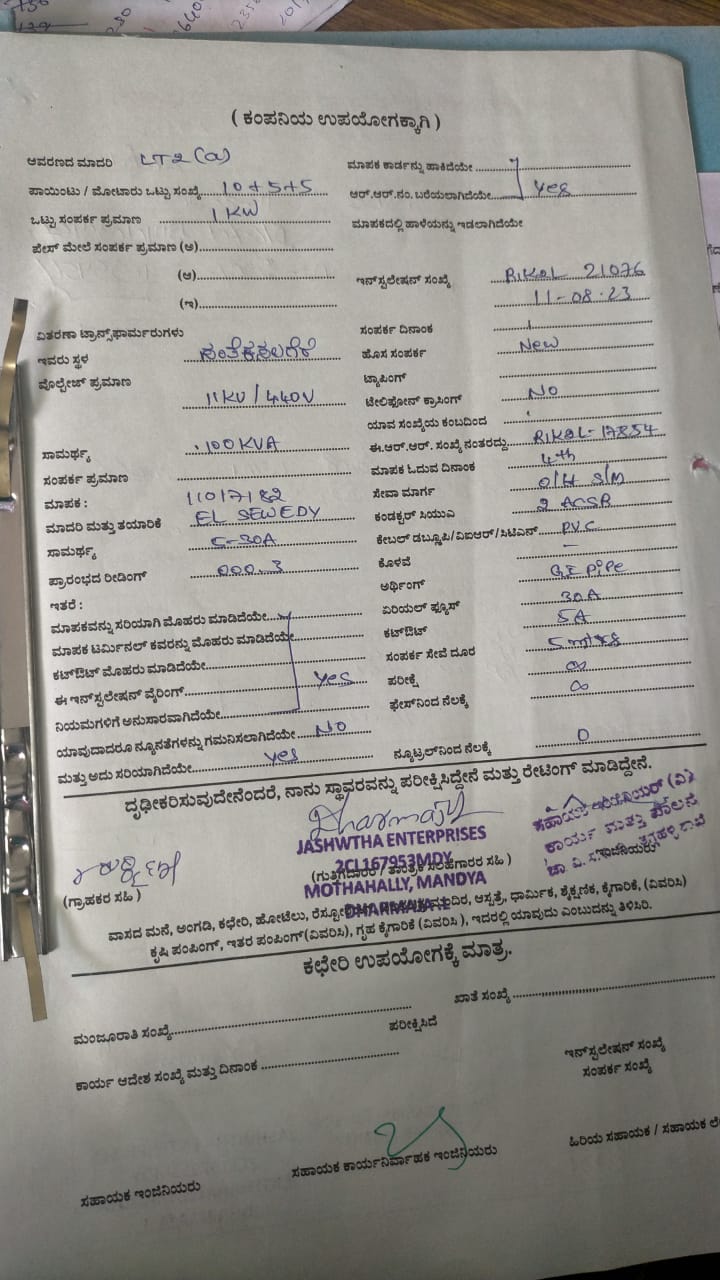 ( ಕಂಪನಿಯ ಉಪಯೋಗಕ್ಕಾಗಿ )
ಆವರಣದ ಮಾದರಿ LT2 (a)
ಪಾಯಿಂಟು / ಮೋಟಾರು ಒಟ್ಟು ಸಂಖ್ಯೆ 10+5+5
ಒಟ್ಟು ಸಂಪರ್ಕ ಪ್ರಮಾಣ 1 KW
ಫೇಸ್ ಮೇಲೆ ಸಂಪರ್ಕ ಪ್ರಮಾಣ (ಅ)
(ಆ)
(ಇ)
ವಿತರಣಾ ಟ್ರಾನ್ಸ್‌ಫಾರ್ಮರುಗಳು
ಇವರು ಸ್ಥಳ ಸಂತೆಕಸಲಗೆರೆ
ವೋಲ್ಟೇಜ್ ಪ್ರಮಾಣ
11KV / 440V
ಸಾಮರ್ಥ್ಯ 100 KVA
ಸಂಪರ್ಕ ಪ್ರಮಾಣ
ಮಾಪಕ : 11017182
ಮಾದರಿ ಮತ್ತು ತಯಾರಿಕೆ EL SEWEDY
ಸಾಮರ್ಥ್ಯ 5-30A
ಪ್ರಾರಂಭದ ರೀಡಿಂಗ್ 000.3
ಇತರೆ :
ಮಾಪಕವನ್ನು ಸರಿಯಾಗಿ ಮೊಹರು ಮಾಡಿದೆಯೇ
ಮಾಪಕ ಟರ್ಮಿನಲ್ ಕವರನ್ನು ಮೊಹರು ಮಾಡಿದೆಯೇ
ಕಟ್‌ಔಟ್ ಮೊಹರು ಮಾಡಿದೆಯೇ
ಈ ಇನ್‌ಸ್ಟಲೇಷನ್ ವೈರಿಂಗ್ Yes
ನಿಯಮಗಳಿಗೆ ಅನುಸಾರವಾಗಿದೆಯೇ
ಯಾವುದಾದರೂ ನ್ಯೂನತೆಗಳನ್ನು ಗಮನಿಸಲಾಗಿದೆಯೇ NO
ಮತ್ತು ಅದು ಸರಿಯಾಗಿದೆಯೇ Yes
ಮಾಪಕ ಕಾರ್ಡನ್ನು ಹಾಕಿದೆಯೇ
ಆರ್.ಆರ್.ನಂ. ಬರೆಯಲಾಗಿದೆಯೇ Yes
ಮಾಪಕದಲ್ಲಿ ಹಾಳೆಯನ್ನು ಇಡಲಾಗಿದೆಯೇ
ಇನ್‌ಸ್ಟಲೇಷನ್ ಸಂಖ್ಯೆ 21076
11-08-23
ಸಂಪರ್ಕ ದಿನಾಂಕ
ಹೊಸ ಸಂಪರ್ಕ New
ಟ್ಯಾಪಿಂಗ್
ಟೆಲಿಫೋನ್ ಕ್ರಾಸಿಂಗ್ NO
ಯಾವ ಸಂಖ್ಯೆಯ ಕಂಬದಿಂದ
ಈ.ಆರ್.ಆರ್. ಸಂಖ್ಯೆ ನಂತರದ್ದು 17854
ಮಾಪಕ ಓದುವ ದಿನಾಂಕ 4th
ಸೇವಾ ಮಾರ್ಗ O/H S/M
ಕಂಡಕ್ಟರ್ ಸಿಯುಎ 2 ACSR
ಕೇಬಲ್ ಡಬ್ಲ್ಯೂಪಿ/ವಿಐಆರ್/ಸಿಟಿಎಸ್ PVC
ಕೊಳವೆ –
ಅರ್ಥಿಂಗ್ GI PIPE
ಏರಿಯಲ್ ಫ್ಯೂಸ್ 30A
ಕಟ್‌ಔಟ್ 5A
ಸಂಪರ್ಕ ಸೇವೆ ದೂರ 5 mtrs
ಪರೀಕ್ಷೆ ∞
ಫೇಸ್‌ನಿಂದ ನೆಲಕ್ಕೆ ∞
ನ್ಯೂಟ್ರಲ್‌ನಿಂದ ನೆಲಕ್ಕೆ 0
ದೃಢೀಕರಿಸುವುದೇನೆಂದರೆ, ನಾನು ಸ್ಥಾವರವನ್ನು ಪರೀಕ್ಷಿಸಿದ್ದೇನೆ ಮತ್ತು ರೇಟಿಂಗ್ ಮಾಡಿದ್ದೇನೆ.
JASHWTHA ENTERPRISES
2CL167953MDY
MOTHAHALLY, MANDYA
ಸಹಾಯಕ ಇಂಜಿನಿಯರ್ (ವಿ)
ಕಾರ್ಯ ಮತ್ತು ಪಾಲನೆ
(ಗ್ರಾಹಕರ ಸಹಿ )
(ಗುತ್ತಿಗೆದಾರರ / ತಾಂತ್ರಿಕ ಸಲಹೆಗಾರರ ಸಹಿ )
ವಾಸದ ಮನೆ, ಅಂಗಡಿ, ಕಛೇರಿ, ಹೋಟೆಲು, ಆಸ್ಪತ್ರೆ, ಧಾರ್ಮಿಕ, ಶೈಕ್ಷಣಿಕ, ಕೈಗಾರಿಕೆ, (ವಿವರಿಸಿ)
ಕೃಷಿ ಪಂಪಿಂಗ್, ಇತರ ಪಂಪಿಂಗ್(ವಿವರಿಸಿ), ಗೃಹ ಕೈಗಾರಿಕೆ (ವಿವರಿಸಿ ), ಇದರಲ್ಲಿ ಯಾವುದು ಎಂಬುದನ್ನು ತಿಳಿಸಿರಿ.
ಕಛೇರಿ ಉಪಯೋಗಕ್ಕೆ ಮಾತ್ರ.
ಮಂಜೂರಾತಿ ಸಂಖ್ಯೆ
ಖಾತೆ ಸಂಖ್ಯೆ
ಪರೀಕ್ಷಿಸಿದೆ
ಕಾರ್ಯ ಆದೇಶ ಸಂಖ್ಯೆ ಮತ್ತು ದಿನಾಂಕ
ಇನ್‌ಸ್ಟಲೇಷನ್ ಸಂಖ್ಯೆ
ಸಂಪರ್ಕ ಸಂಖ್ಯೆ
ಸಹಾಯಕ ಇಂಜಿನಿಯರು
ಸಹಾಯಕ ಕಾರ್ಯನಿರ್ವಾಹಕ ಇಂಜಿನಿಯರು
ಹಿರಿಯ ಸಹಾಯಕ / ಸಹಾಯಕ